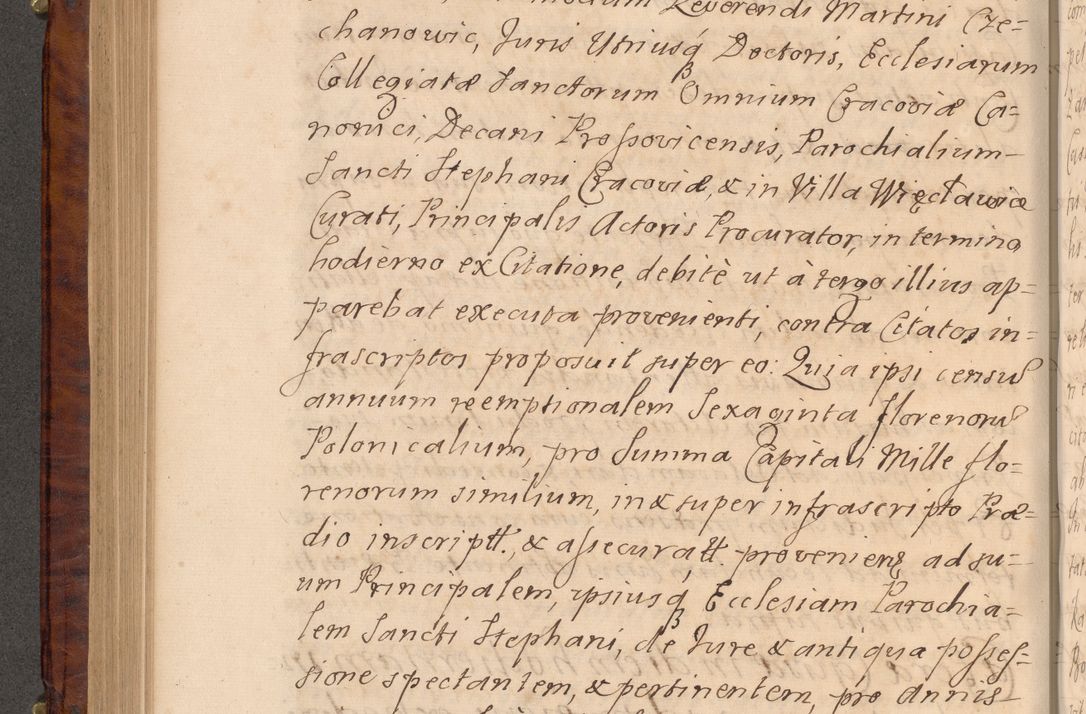 modum Reverendi Martini Cze=
chanowic, Juris Utriusq́ Doctoris, Ecclesiarum
Collegiatæ Sanctorum Omnium Cracoviæ Ca=
nonici, Decani Proſsovicensis, Parochialium
Sancti Stephani Cracoviæ, & in Villa Więcłavice
Curati, Principalis Actoris Procurator, in termino
hodierno ex Citatione, debitè ut à tergo illius ap=
parebat executa provenienti, contra Citatos in=
frascriptos proposuit super eo: Quia ipsi censũ
annuum reemptionalem Sexaginta florenorũ
Polonicalium, pro Summa Capitali Mille flo=
renorum similium, in & super infrascripto Præ=
dio inscriptt., & aſsecuratt. provenienę ad su=
um Principalem, ipsiusq́ Ecclesiam Parochia=
lem Sancti Stephani, de Jure & antiqua poſses=
sione spectantem, & pertinentem, pro annis